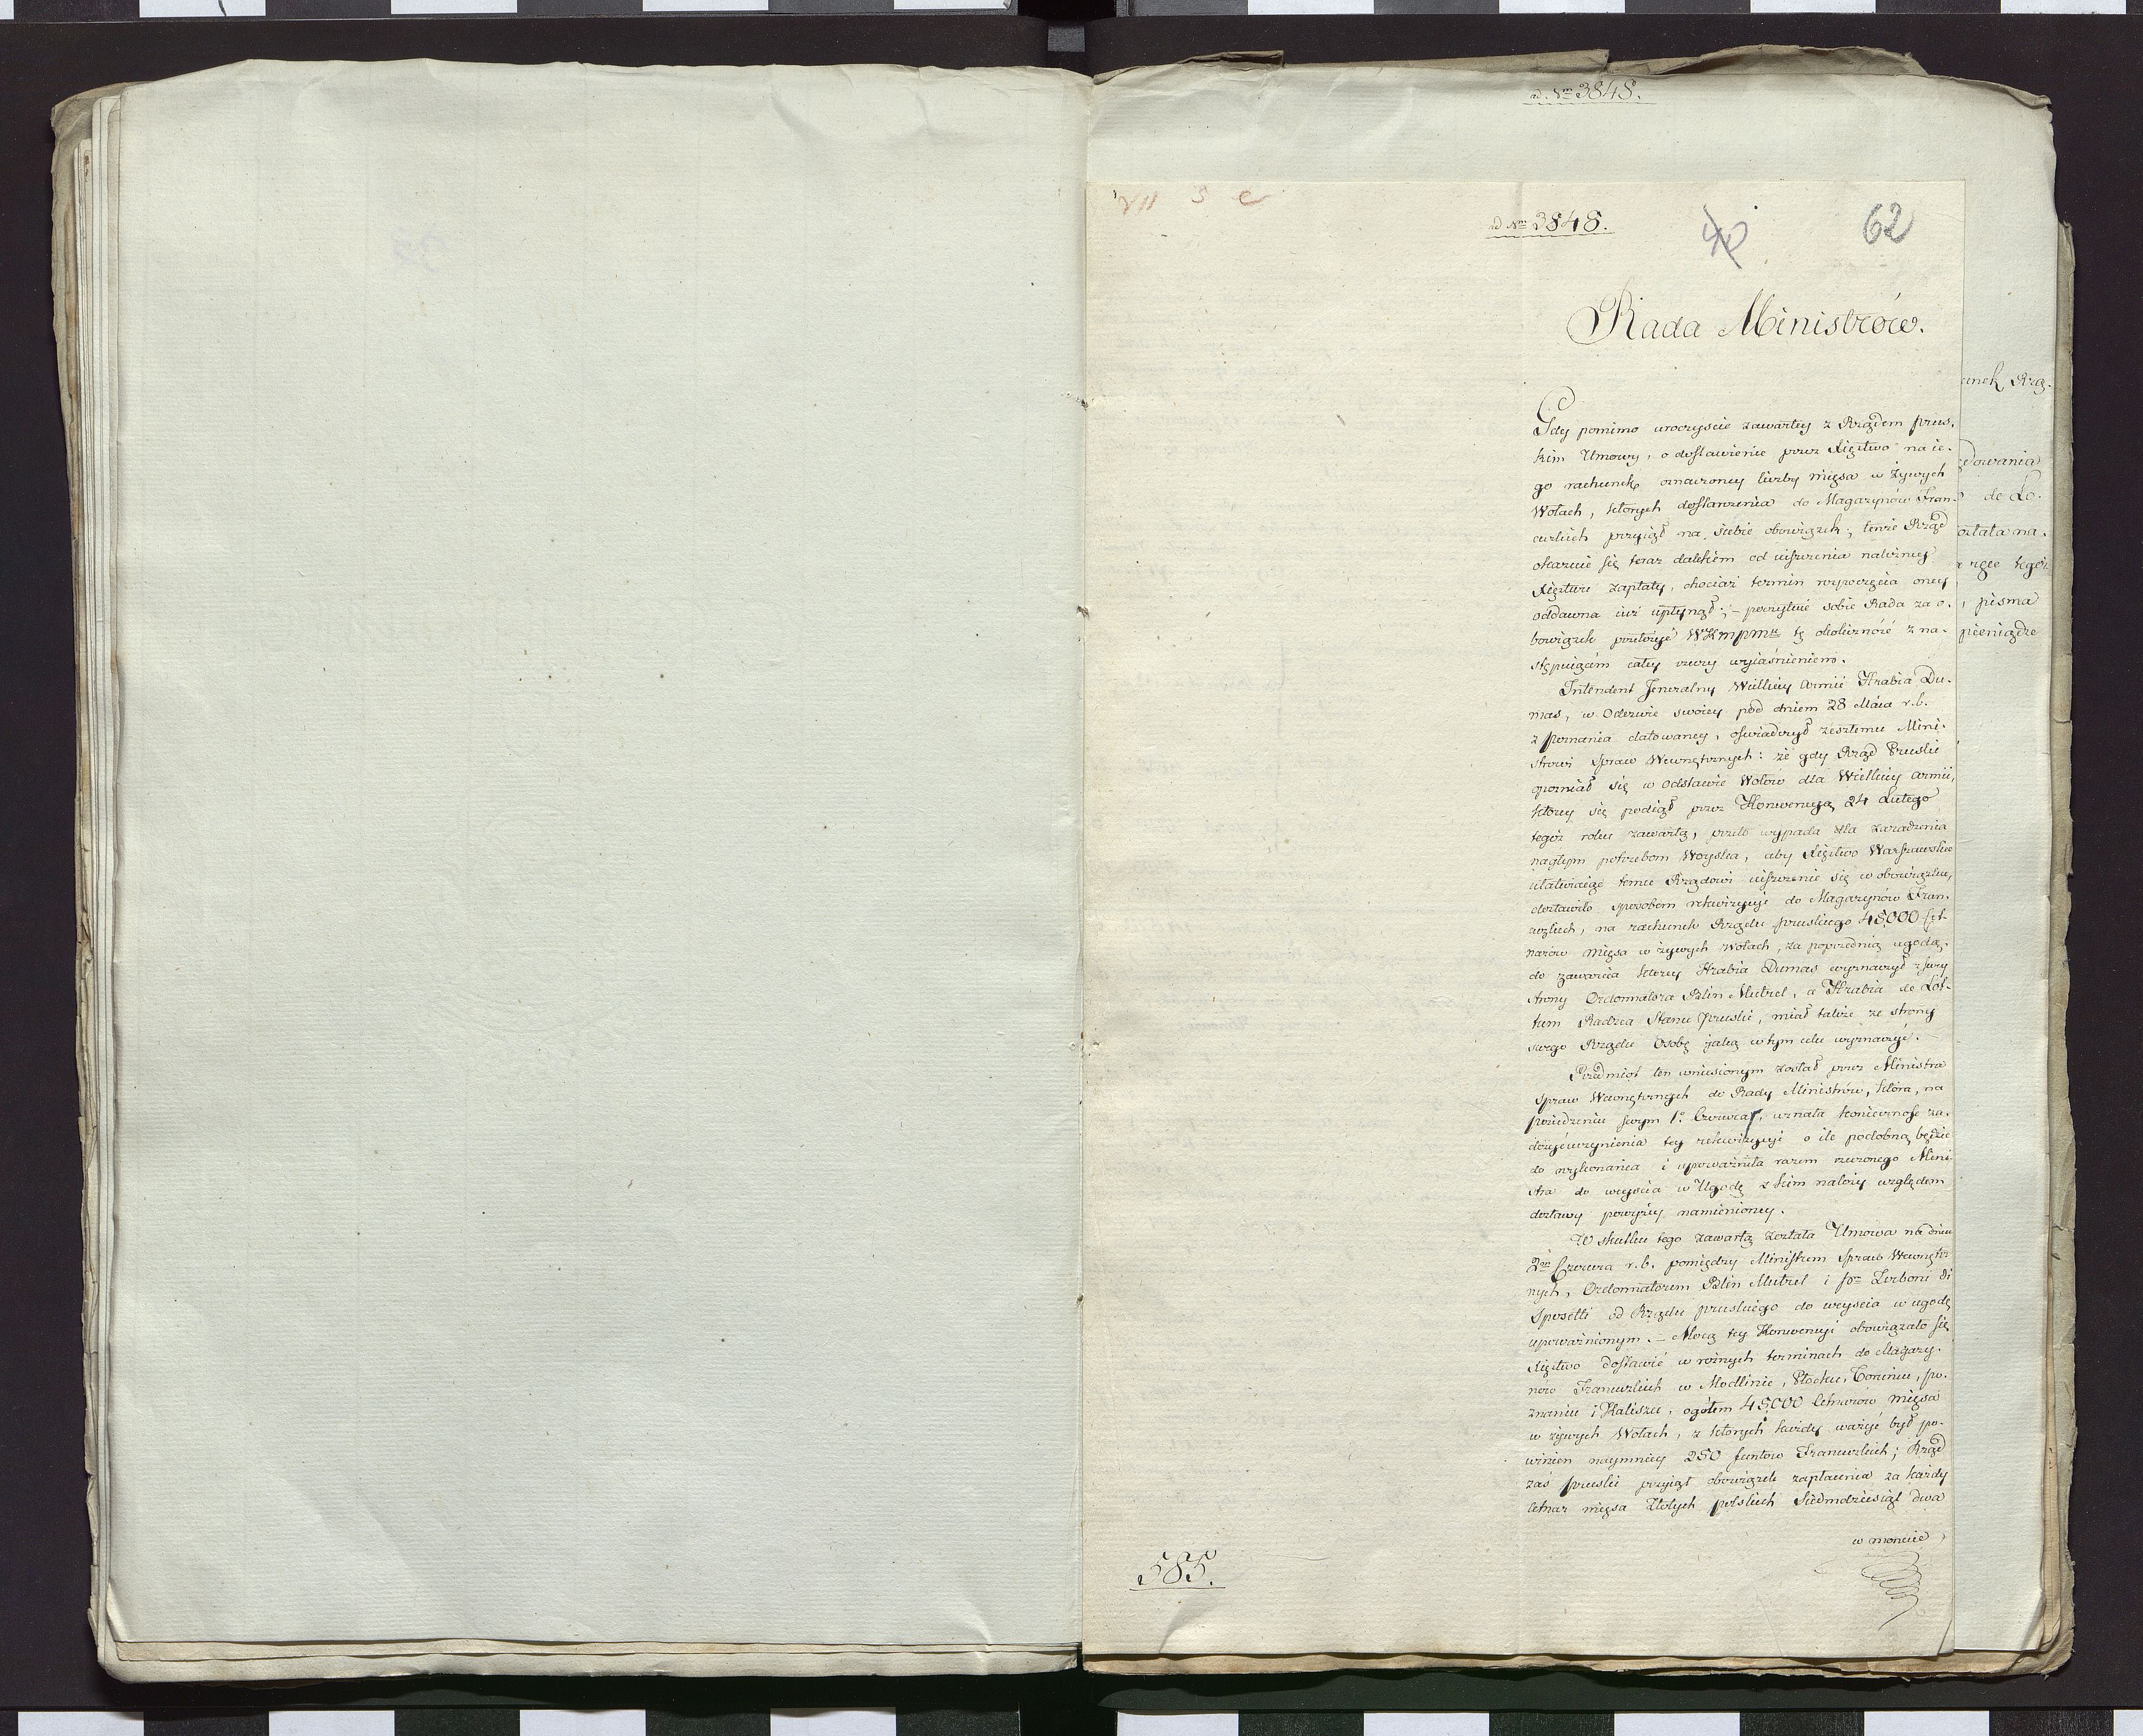 ad Nm 3848.
VII 5 c
ad Nm 3848.
40
62
Rada Ministrów.
Gdy pomimo uroczyscie zawartey z Rządem prus-
kim Umowy, o dostawienie przez Xięztwo na ie-
go rachunek oznaczoney liczby mięsa w żywych
Wołach, których dostarczenia do Magazynów Fran-
cuzkich przyiął na siebie obowiązek; tenże Rząd
okazuie się teraz dalekiem od uiszczenia należney
Xięztwu zapłaty, chociaż termin rozpoczęcia oney
oddawna iuż upłynął; – poczytuie sobie Rada za o-
bowiązek przełożyć WKmpmu tę okoliczność z na-
stępuiącém całey rzeczy wyiaśnieniem.
Intendent Jeneralny Wielkiey Armii Hrabia Du-
mas, w Odezwie swoiey pod dniem 28 Maia r.b.
z Poznania datowaney, oświadczył zeszłemu Mini-
strowi Spraw Wewnętrznych: że gdy Rząd Pruski
opoźniał się w Odstawie Wołów dla Wielkiey Armii,
którey się podiął przez Konwencyą 24 Lutego
tegoż roku zawartą, przeto wypada dla zaradzenia
nagłym potrzebom Woyska, aby Xięztwo Warszawskie
ułatwiaiąc temu Rządowi uiszczenie się w obowiązku,
dostawiło sposobem rekwizycyi do Magazynów Fran-
cuzkich, na rachunek Rządu pruskiego 45000 Cet-
narów mięsa w żywych Wołach, za poprzednią ugodą,
do zawarcia którey Hrabia Dumas wyznaczył z swey
strony Ordonnatora Blin Mutrel, a Hrabia de Lot-
tum Radzca Stanu Pruski, miał także ze strony
swego Rządu Osobę iaką w tym celu wyznaczyć.
Przedmiot ten wniesionym został przez Ministra
Spraw Wewnętrznych do Rady Ministrów, która, na
posiedzeniu swym 1o Czerwca r. uznała konieczność za-
dosyćuczynienia tey rekwizycyi o ile podobną będzie
do wykonania i upoważniła razem rzeczonego Mini-
stra do weyścia w Ugodę z kim należy względem
dostawy powyżey namienioney.
W skutku tego zawartą została Umowa na dniu
2gm Czerwca r.b. pomiędzy Ministrem Spraw Wewnętrz-
nych, Ordonnatorem Blin Mutrel i Jp. Zerboni di
Sposetti od Rządu pruskiego do weyścia w ugodę
upoważnionym. – Mocą tey Konwencyi obowiązało się
Xięztwo dostawić w różnych terminach do Magazy-
nów Francuzkich w Modlinie, Płocku, Toruniu, Po-
znaniu i Kaliszu, ogółem 45000 Cetnarów mięsa
w żywych Wołach, z których każdy ważyć był po-
winien naymniey 250 funtów Francuzkich; Rząd
zaś pruski przyiął obowiązek zapłacenia za każdy
Cetnar mięsa Złotych polskich Siedmdziesiąt dwa
w moneie
585.
unek Rzą-
dowania
de Lo-
ostała na-
pisma
pieniądze